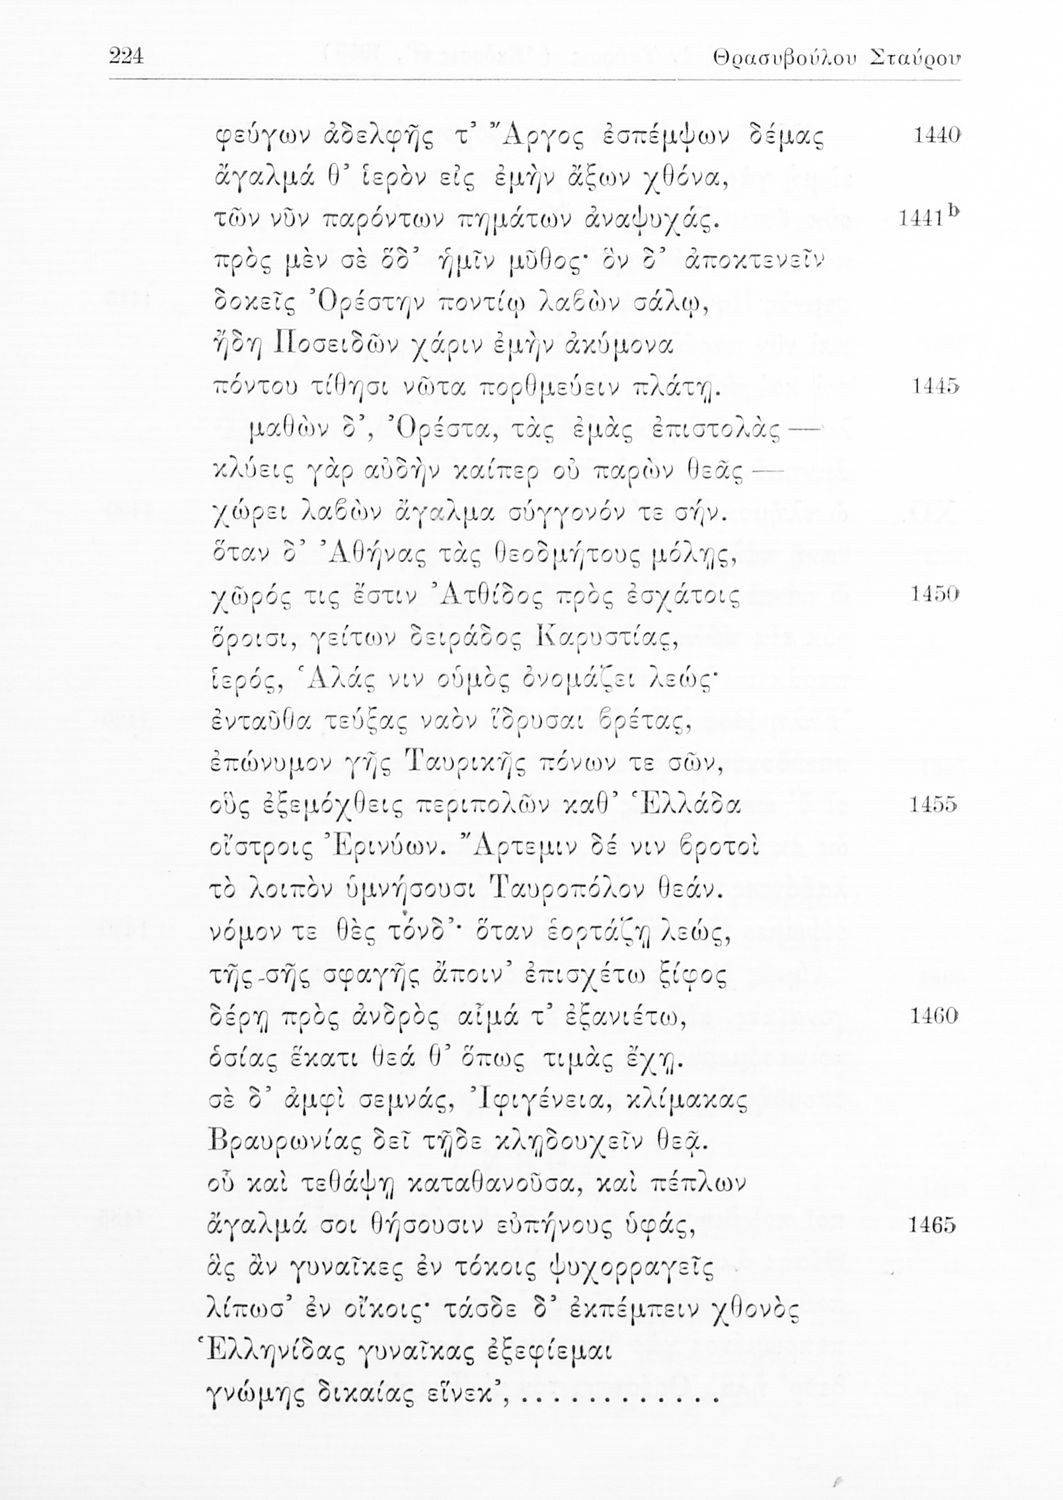 224 Θρασυβούλου Σταύρου
φεύγων ἀδελφῆς τ’ Ἄργος ἐσπέμψων δέμας 1440
ἄγαλμά θ’ ἱερὸν εἰς ἐμὴν ἄξων χθόνα,
τῶν νῦν παρόντων πημάτων ἀναψυχάς. 1441ᵇ
πρὸς μὲν σὲ ὅδ’ ἡμῖν μῦθος· ὃν δ’ ἀποκτενεῖν
δοκεῖς Ὀρέστην ποντίῳ λαβὼν σάλῳ,
ἤδη Ποσειδῶν χάριν ἐμὴν ἀκύμονα
πόντου τίθησι νῶτα πορθμεύειν πλάτῃ. 1445
μαθὼν δ’, Ὀρέστα, τὰς ἐμὰς ἐπιστολὰς —
κλύεις γὰρ αὐδὴν καίπερ οὐ παρὼν θεᾶς —
χώρει λαβὼν ἄγαλμα σύγγονόν τε σήν.
ὅταν δ’ Ἀθήνας τὰς θεοδμήτους μόλῃς,
χῶρός τις ἔστιν Ἀτθίδος πρὸς ἐσχάτοις 1450
ὅροισι, γείτων δειράδος Καρυστίας,
ἱερός, Ἁλάς νιν οὑμὸς ὀνομάζει λεώς·
ἐνταῦθα τεύξας ναὸν ἵδρυσαι βρέτας,
ἐπώνυμον γῆς Ταυρικῆς πόνων τε σῶν,
οὓς ἐξεμόχθεις περιπολῶν καθ’ Ἑλλάδα 1455
οἴστροις Ἐρινύων. Ἄρτεμιν δέ νιν βροτοὶ
τὸ λοιπὸν ὑμνήσουσι Ταυροπόλον θεάν.
νόμον τε θὲς τόνδ’· ὅταν ἑορτάζῃ λεώς,
τῆς σῆς σφαγῆς ἄποιν’ ἐπισχέτω ξίφος
δέρῃ πρὸς ἀνδρὸς αἷμά τ’ ἐξανιέτω, 1460
ὁσίας ἕκατι θεά θ’ ὅπως τιμὰς ἔχῃ.
σὲ δ’ ἀμφὶ σεμνάς, Ἰφιγένεια, κλίμακας
Βραυρωνίας δεῖ τῇδε κλῃδουχεῖν θεᾷ.
οὗ καὶ τεθάψῃ κατθανοῦσα, καὶ πέπλων
ἄγαλμά σοι θήσουσιν εὐπήνους ὑφάς, 1465
ἃς ἂν γυναῖκες ἐν τόκοις ψυχορραγεῖς
λίπωσ’ ἐν οἴκοις· τάσδε δ’ ἐκπέμπειν χθονὸς
Ἑλληνίδας γυναῖκας ἐξεφίεμαι
γνώμης δικαίας εἵνεκ’, . . . . . . . . . . . .